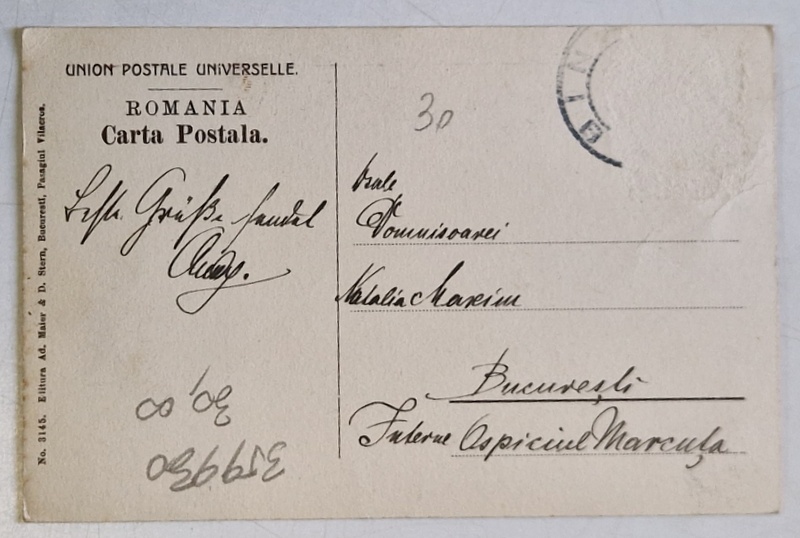 UNION POSTALE UNIVERSELLE.
ROMANIA
Carta Postala.
No. 3145. Editura Ad. Maier & D. Stern, Bucuresti, Pasagiul Vilacros.
Grüße sendet
30
Domnisoarei
Natalia Maxim
Bucureşti
Interne Ospiciul Marcuţa
30,00
359930